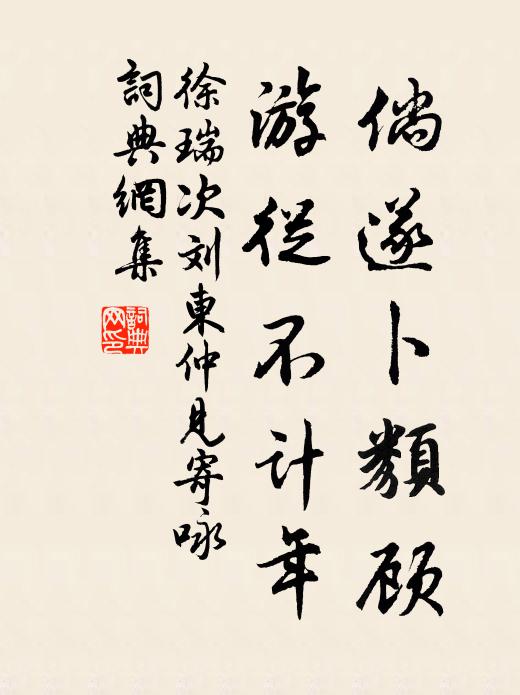 倘遂卜纇顾
游從不计年
徐瑞次刘東仲見寄咏
詞典網集
詞典
网印